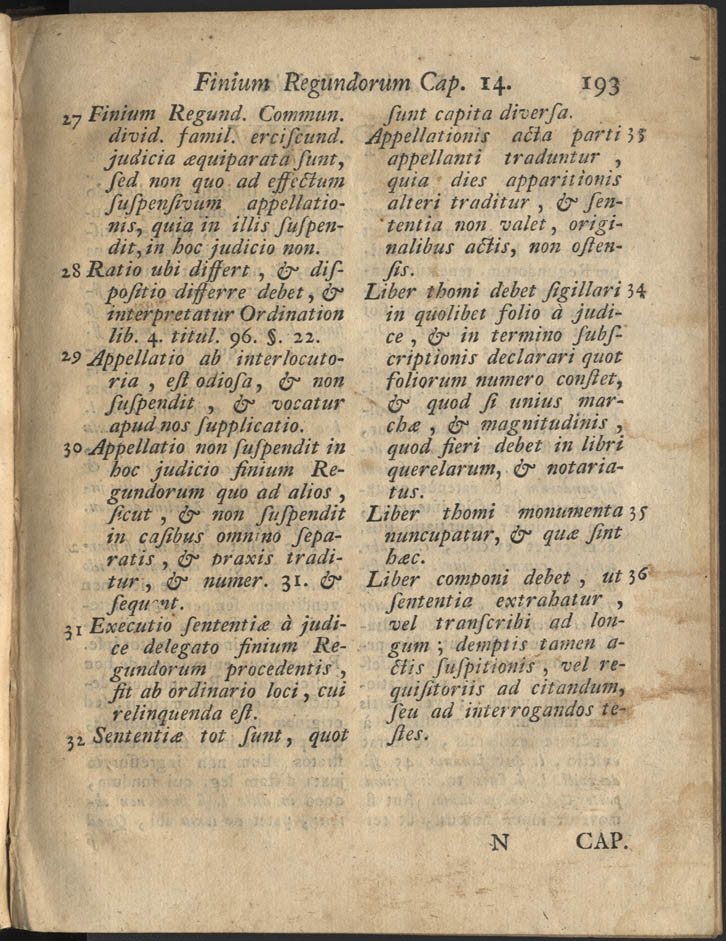 Finium Regundorum Cap. 14. 193
27 Finium Regund. Commun.
divid. famil. erciſcund.
judicia æquiparata ſunt,
ſed non quo ad effectum
ſuſpenſivum appellatio-
nis, quia in illis ſuſpen-
dit, in hoc judicio non.
28 Ratio ubi differt, & diſ-
poſitio differre debet, &
interpretatur Ordination
lib. 4. titul. 96. §. 22.
29 Appellatio ab interlocuto-
ria, eſt odioſa, & non
ſuſpendit, & vocatur
apud nos ſupplicatio.
30 Appellatio non ſuſpendit in
hoc judicio finium Re-
gundorum quo ad alios,
ſicut, & non ſuſpendit
in caſibus omnino ſepa-
ratis, & praxis tradi-
tur, & numer. 31. &
ſequent.
31 Executio ſententiæ à judi-
ce delegato finium Re-
gundorum procedentis,
fit ab ordinario loci, cui
relinquenda eſt.
32 Sententiæ tot ſunt, quot
ſunt capita diverſa.
Appellationis acta parti 33
appellanti traduntur,
quia dies apparitionis
alteri traditur, & ſen-
tentia non valet, origi-
nalibus actis, non oſten-
ſis.
Liber thomi debet ſigillari 34
in quolibet folio à judi-
ce, & in termino ſubſ-
criptionis declarari quot
foliorum numero conſtet,
& quod ſi unius mar-
chæ, & magnitudinis,
quod fieri debet in libri
querelarum, & notaria-
tus.
Liber thomi monumenta 35
nuncupatur, & quæ ſint
hæc.
Liber componi debet, ut 36
ſententia extrahatur,
vel tranſcribi ad lon-
gum; demptis tamen a-
ctis ſuſpitionis, vel re-
quiſitoriis ad citandum,
ſeu ad interrogandos te-
ſtes.
N CAP.